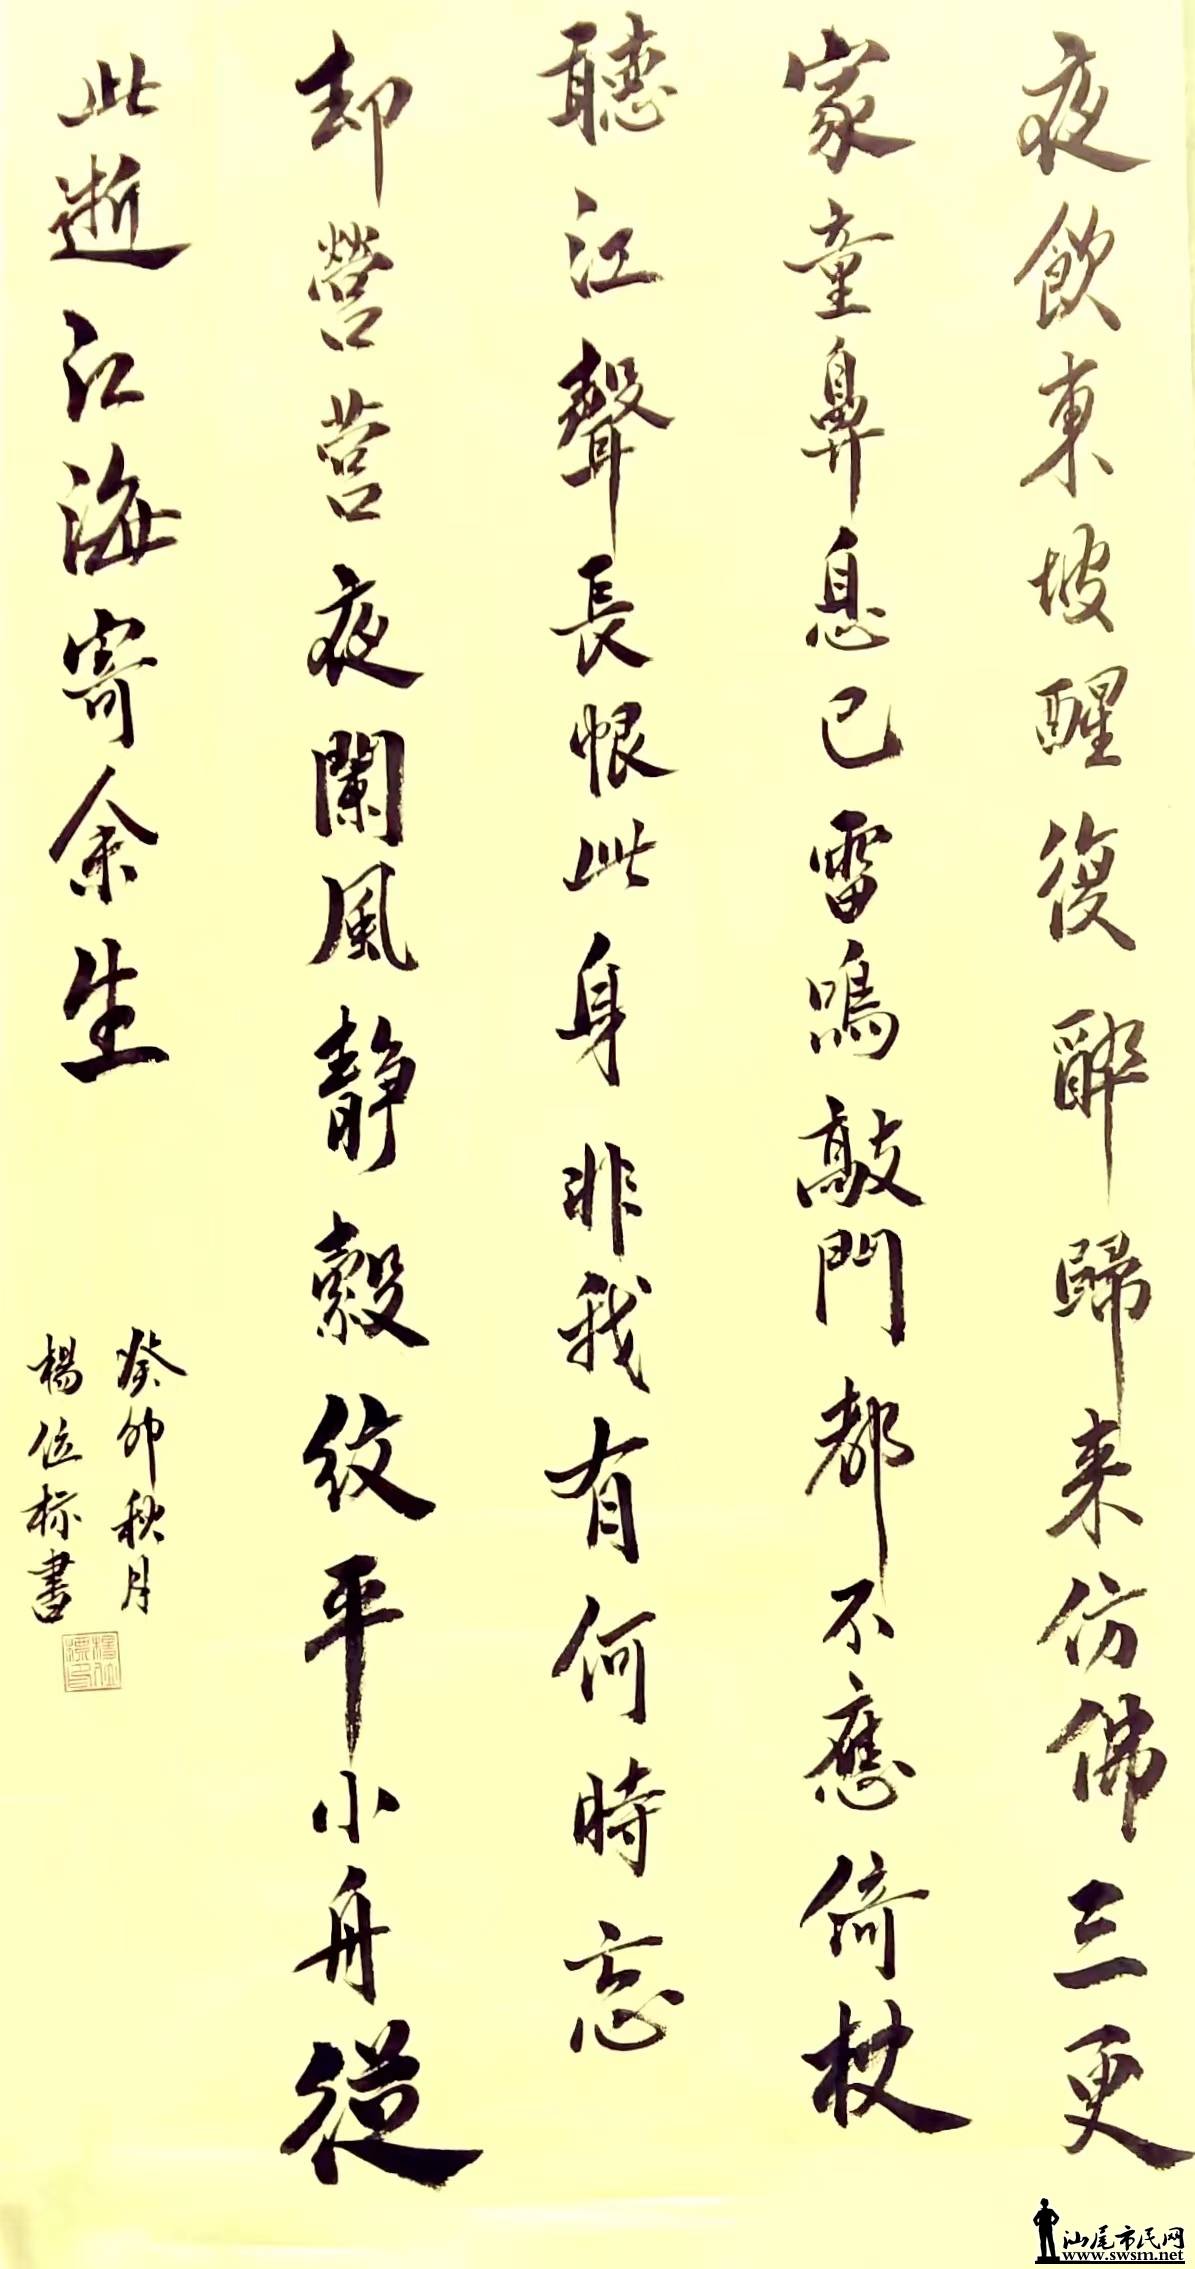 夜飲東坡醒復醉歸来仿佛三更
家童鼻息已雷鳴敲門都不應倚杖
聽江聲長恨此身非我有何時忘
却營营夜闌風靜縠紋平小舟從
此逝江海寄余生
癸卯秋月
楊位标書
汕尾市民网
www.swsm.net